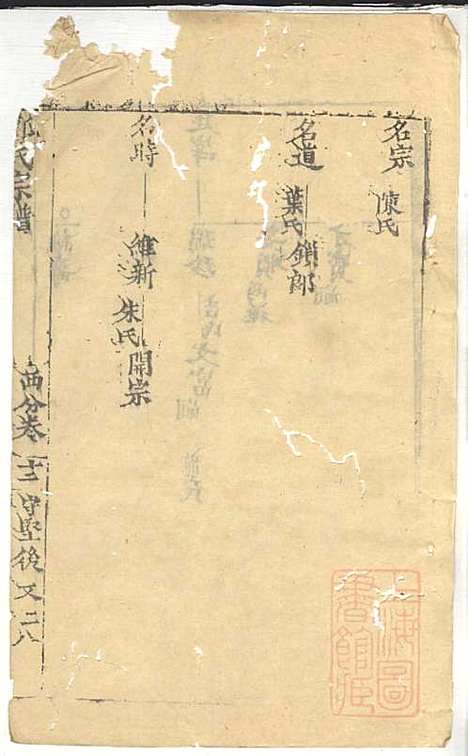 名宗 陳氏
名道 葉氏 鎖郎
名時 維新 朱氏 開宗
氏宗譜 西分卷十三 守堅後 又二八
上海圖書館藏